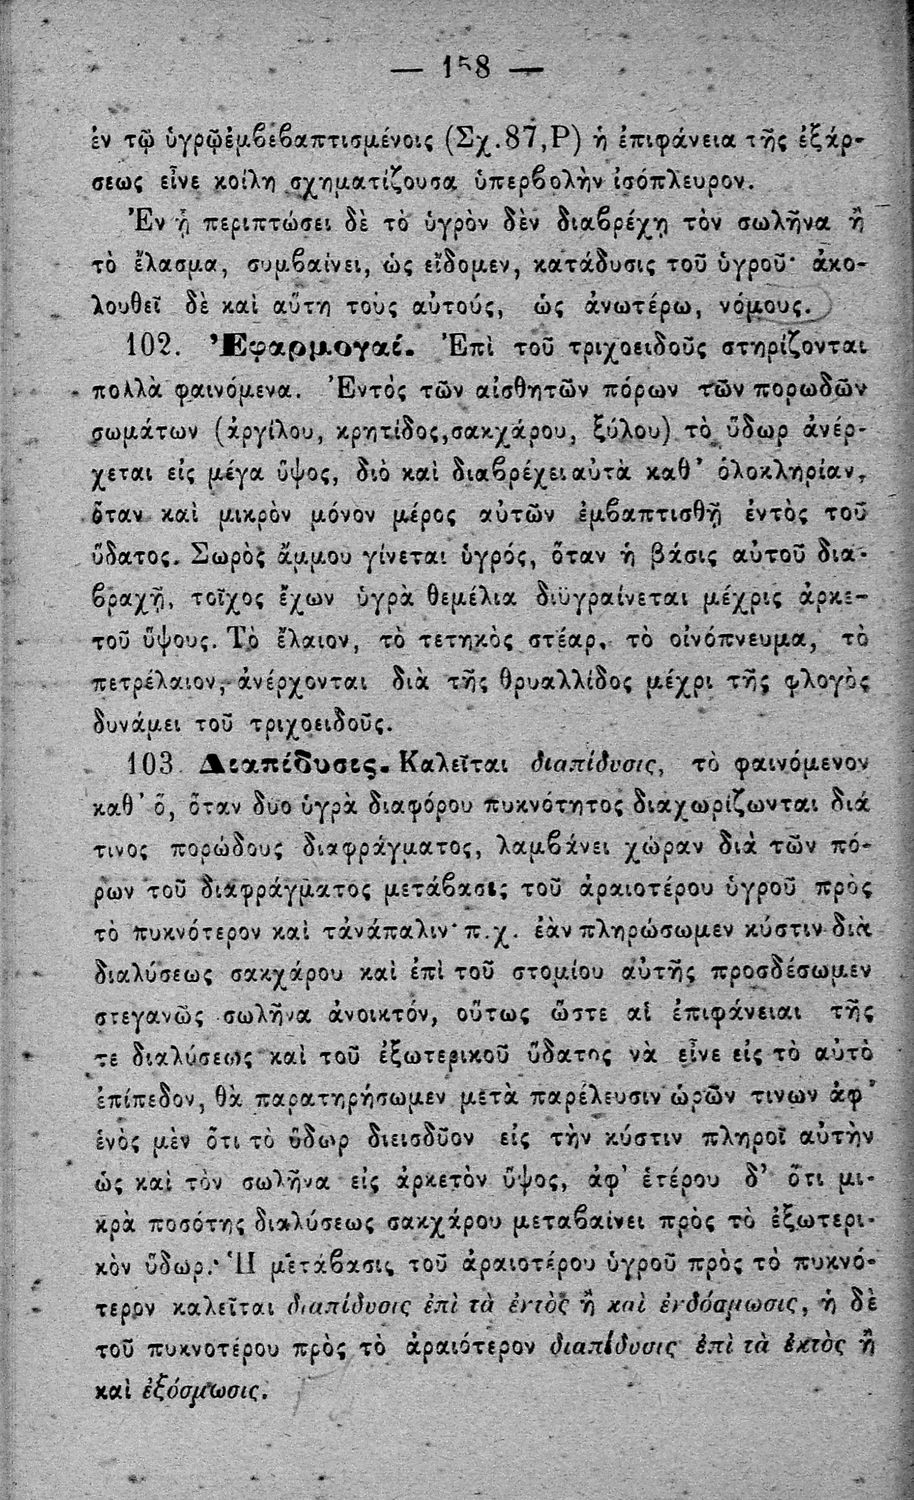 — 158 —
ἐν τῷ ὑγρῷ ἐμβεβαπτισμένοις (Σχ.87,Ρ) ἡ ἐπιφάνεια τῆς ἐξάρ-
σεως εἶνε κοίλη σχηματίζουσα ὑπερβολὴν ἰσόπλευρον.
Ἐν ᾗ περιπτώσει δὲ τὸ ὑγρὸν δὲν διαβρέχῃ τὸν σωλῆνα ἢ
τὸ ἔλασμα, συμβαίνει, ὡς εἴδομεν, κατάδυσις τοῦ ὑγροῦ· ἀκο-
λουθεῖ δὲ καὶ αὕτη τοὺς αὐτούς, ὡς ἀνωτέρω, νόμους.
102. Ἐφαρμογαί. Ἐπὶ τοῦ τριχοειδοῦς στηρίζονται
πολλὰ φαινόμενα. Ἐντὸς τῶν αἰσθητῶν πόρων τῶν πορωδῶν
σωμάτων (ἀργίλου, κρητίδος, σακχάρου, ξύλου) τὸ ὕδωρ ἀνέρ-
χεται εἰς μέγα ὕψος, διὸ καὶ διαβρέχει αὐτὰ καθ' ὁλοκληρίαν,
ὅταν καὶ μικρὸν μόνον μέρος αὐτῶν ἐμβαπτισθῇ ἐντὸς τοῦ
ὕδατος. Σωρὸς ἄμμου γίνεται ὑγρός, ὅταν ἡ βάσις αὐτοῦ δια-
βραχῇ, τοῖχος ἔχων ὑγρὰ θεμέλια διϋγραίνεται μέχρις ἀρκε-
τοῦ ὕψους. Τὸ ἔλαιον, τὸ τετηκὸς στέαρ, τὸ οἰνόπνευμα, τὸ
πετρέλαιον, ἀνέρχονται διὰ τῆς θρυαλλίδος μέχρι τῆς φλογὸς
δυνάμει τοῦ τριχοειδοῦς.
103. Διαπίδυσις. Καλεῖται διαπίδυσις, τὸ φαινόμενον
καθ' ὅ, ὅταν δυο ὑγρὰ διαφόρου πυκνότητος διαχωρίζωνται διά
τινος πορώδους διαφράγματος, λαμβάνει χώραν διὰ τῶν πό-
ρων τοῦ διαφράγματος μετάβασις τοῦ ἀραιοτέρου ὑγροῦ πρὸς
τὸ πυκνότερον καὶ τἀνάπαλιν· π.χ. ἐὰν πληρώσωμεν κύστιν διὰ
διαλύσεως σακχάρου καὶ ἐπὶ τοῦ στομίου αὐτῆς προσδέσωμεν
στεγανῶς σωλῆνα ἀνοικτόν, οὕτως ὥστε αἱ ἐπιφάνειαι τῆς
τε διαλύσεως καὶ τοῦ ἐξωτερικοῦ ὕδατος νὰ εἶνε εἰς τὸ αὐτὸ
ἐπίπεδον, θὰ παρατηρήσωμεν μετὰ παρέλευσιν ὡρῶν τινων ἀφ'
ἑνὸς μὲν ὅτι τὸ ὕδωρ διεισδῦον εἰς τὴν κύστιν πληροῖ αὐτὴν
ὡς καὶ τὸν σωλῆνα εἰς ἀρκετὸν ὕψος, ἀφ' ἑτέρου δ' ὅτι μι-
κρὰ ποσότης διαλύσεως σακχάρου μεταβαίνει πρὸς τὸ ἐξωτερι-
κὸν ὕδωρ.· Ἡ μετάβασις τοῦ ἀραιοτέρου ὑγροῦ πρὸς τὸ πυκνό-
τερον καλεῖται διαπίδυσις ἐπὶ τὰ ἐντὸς ἢ καὶ ἐνδόσμωσις, ἡ δὲ
τοῦ πυκνοτέρου πρὸς τὸ ἀραιότερον διαπίδυσις ἐπὶ τὰ ἐκτὸς ἢ
καὶ ἐξόσμωσις.